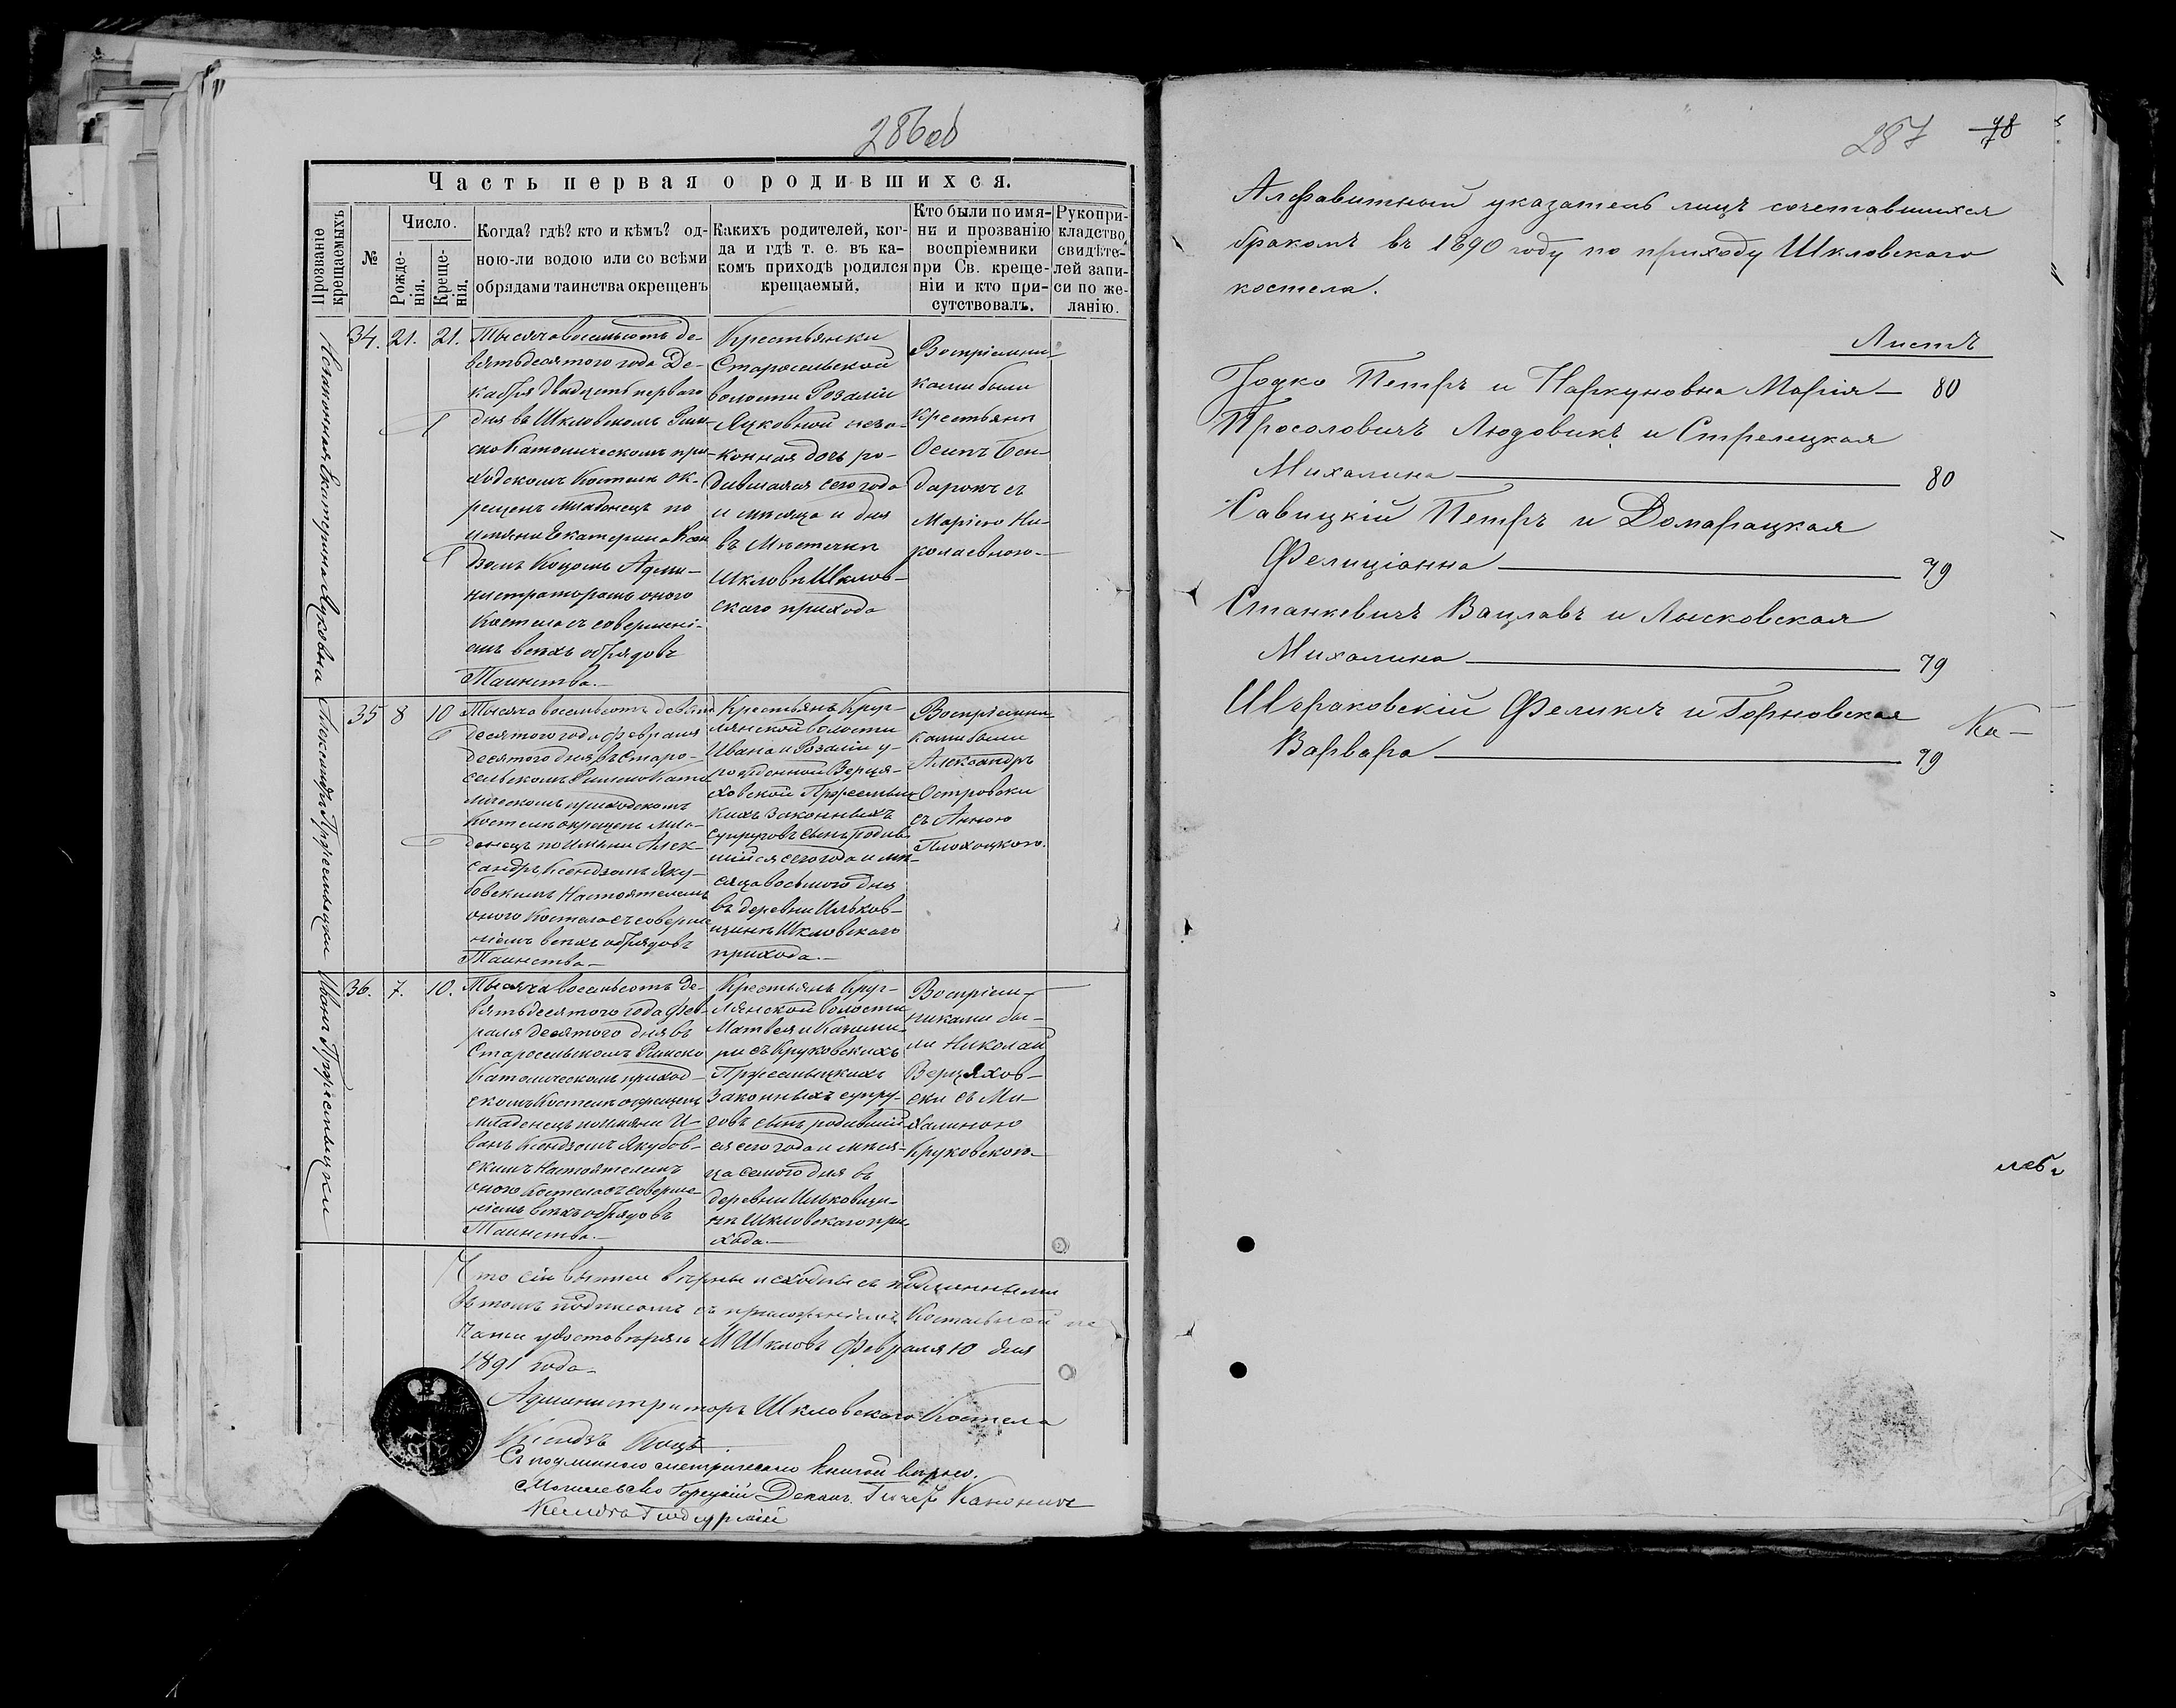 286 об
Часть первая о родившихся.
Прозваніе крещаемыхъ
№
Число.
Рожде-
нія.
Креще-
нія.
Когда? гдѣ? кто и кѣмъ? од-
ною-ли водою или со всѣми
обрядами таинства окрещенъ
Какихъ родителей, ког-
да и гдѣ т. е. въ ка-
комъ приходѣ родился
крещаемый.
Кто были по имя-
ни и прозванію
воспріемники
при Св. креще-
ніи и кто при-
сутствовалъ.
Рукопри-
кладство
свидѣте-
лей запи-
си по же-
ланію.
Незаконная Екатерина Яцковна
34. 21. 21.
Тысяча восемьсотъ де-
вятьдесятого года Де-
кабря двадцать перваго
дня въ Шкловскомъ Рим-
ско Католическомъ при-
ходскомъ Костелѣ ок-
рещенъ младенецъ по
имяни Екатерина Ксен
дзомъ Коцомъ Адми-
нистраторомъ оного
Костела съ совершені-
емъ всѣхъ обрядовъ
Таинства.—
Крестьянки
Старосельской
волости Розаліи
Яцковной неза-
конная дочь ро-
дившаяся сего года
и мѣсяца и дня
въ Мѣстечкѣ
Шкловѣ Шклов-
скаго прихода
Воспріемни-
ками были
Крестьянѣ
Осипъ Бон-
дарокъ съ
Маріею Ни-
колаевною—
Александръ Пржесмыцки
35 8 10
Тысяча восемьсотъ девять
десятого года февраля
десятого дня въ Старо-
сельскомъ Римско Като
лическомъ приходскомъ
костелѣ окрещенъ мла-
денецъ по имяни Алек-
сандръ Ксендзомъ Яку-
бовскимъ Настоятелемъ
оного Костела съ соверше
ніемъ всѣхъ обрядовъ
Таинства—
Крестьянъ Круг-
лянской волости
Ивана и Розаліи у-
рожденной Верця-
ховской Пржесмыц
кихъ законныхъ
супруговъ сынъ родив-
шійся сего года и мѣ-
сяца восьмого дня
въ деревни Ильков-
щинѣ Шкловскаго
прихода.—
Воспріемни-
ками были
Александръ
Островски
съ Анною
Плохоцкою.
Иванъ Пржесмыцки
36. 7. 10.
Тысяча восемьсотъ де-
вятьдесятого года фев-
раля десятого дня въ
Старосельскомъ Римско
Католическомъ приход-
скомъ Костелѣ окрещенъ
младенецъ по имяни И-
ванъ Ксендзомъ Якубов-
скимъ Настоятелемъ
оного Костела съ соверше-
ніемъ всѣхъ обрядовъ
Таинства.—
Крестьянъ Круг-
лянской волости
Матвея и Казими-
ри съ Круковскихъ
Пржесмыцкихъ
законныхъ супру-
говъ сынъ родивший-
ся сего года и мѣся-
ца семого дня въ
деревни Ильковщи-
нѣ Шкловскаго при
хода.—
Воспріем-
никами бы-
ли Николай
Верцяхов-
ски съ Ми-
халиною
Круковскою—
Что сіи выписи вѣрны и сходны съ подлинными
въ томъ подписомъ съ приложеніемъ Костельной пе
чати удостовѣряю М Шкловъ Февраля 10 дня
1891 года—
Администраторъ Шкловскаго Костела
Ксендзъ Коцъ
Съ подлинною метрическою книгой вѣрно.
Могилевско Горецкій Деканъ
287 78
Алфавитный указатель лицъ сочетавшихся
бракомъ въ 1890 году по приходу Шкловскаго
костела.
Листъ
Годко Петръ и Наркуновна Марія— 80
Просоловичъ Людовикъ и Стрелецкая
Михалина — 80
Савицкій Петръ и Домарацкая
Фелиціанна — 79
Станкевичъ Вацлавъ и Лысковская
Михалина — 79
Шераковскій Феликсъ и Горновская
Варвара — 79